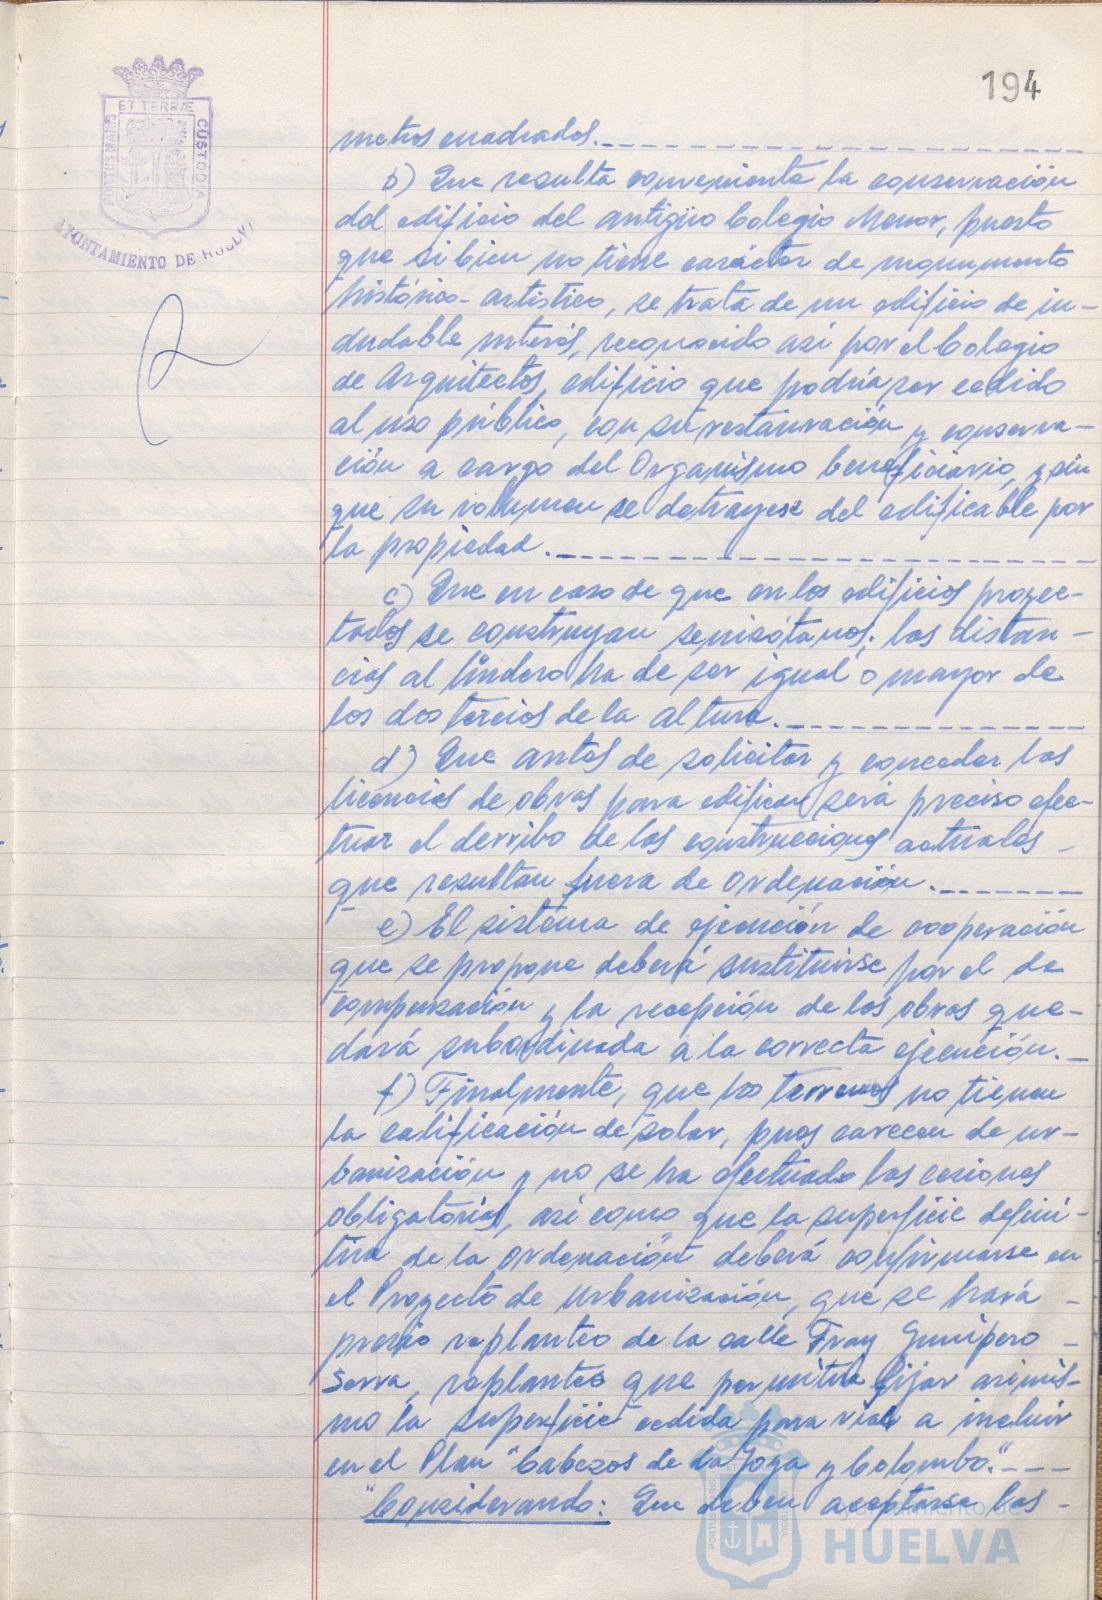 194
ET TERRÆ
PORTUS MARIS
CUSTODIA
AYUNTAMIENTO DE HUELVA
metros cuadrados.
b) Que resulta conveniente la conservación
del edificio del antigüo Colegio Menor, puesto
que si bien no tiene carácter de monumento
histórico-artístico, se trata de un edificio de in-
dudable interés, reconocido así por el Colegio
de Arquitectos, edificio que podría ser cedido
al uso público, con su restauración y conserva-
ción a cargo del Organismo beneficiario, y sin
que su volumen se detrayese del edificable por
la propiedad.
c) Que en caso de que en los edificios proyec-
tados se construyan semisótanos, las distan-
cias al lindero ha de ser igual o mayor de
los dos tercios de la altura.
d) Que antes de solicitar y conceder las
licencias de obras para edificar será preciso efec-
tuar el derribo de las construcciones actuales
que resultan fuera de ordenación.
e) El sistema de ejecución de cooperación
que se propone deberá sustituirse por el de
compensación y la recepción de las obras que-
dará subordinada a la correcta ejecución.
f) Finalmente, que los terrenos no tienen
la calificación de solar, pues carecen de ur-
banización y no se ha efectuado las cesiones
obligatorias, así como que la superficie defini-
tiva de la ordenación deberá confirmarse en
el Proyecto de Urbanización, que se hará
previo replanteo de la calle Fray Junípero
Serra, replanteo que permitirá fijar asimis-
mo la superficie cedida para vial a incluir
en el Plan "Cabezos de la Joya y Colombo."
"Considerando: Que deben aceptarse las
Ayuntamiento de
HUELVA